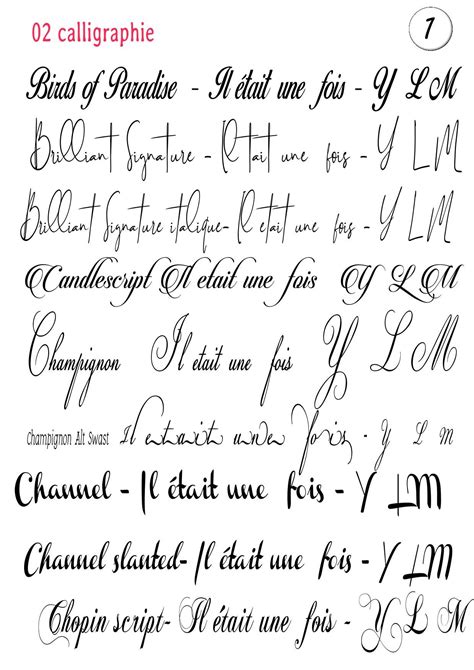 02 calligraphie
1
Birds of Paradise - Il était une fois - Y L M
Brilliant Signature - Il tait une fois - Y L M
Brilliant Signature italique- Il etait une fois - Y L M
Candlescript Il etait une fois Y L M
Champignon Il etait une fois Y L M
Champignon Alt Swast Il etait une fois - Y L M
Channel - Il était une fois - Y L M
Channel slanted- Il était une fois - Y L M
Chopin script- Il était une fois - Y L M